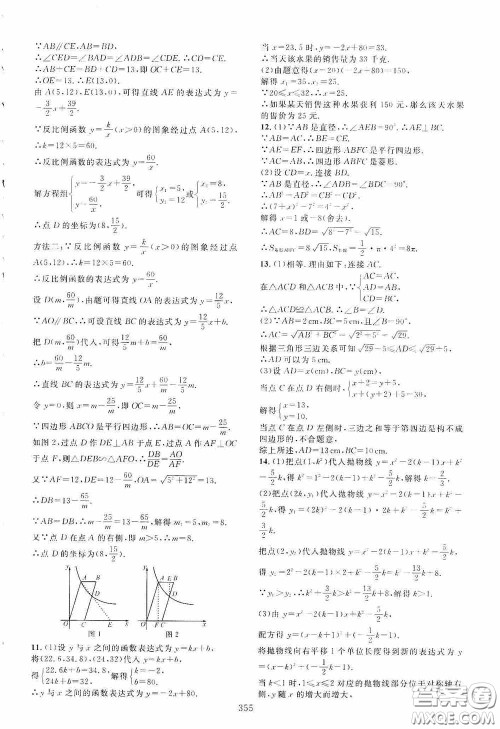 ∵AB∥CE,AB=CE,
∴∠CED=∠BAD=∠ADE=∠CDE,
∴CE=CD.
∴OC+CE=OC+CD=13,即OC+OE=13.
∴OE=13,∴E(13,0).
由点A(5,12),E(13,0),可得直线AE的表达式为y=
-3/2x+39/2.
∵反比例函数y=k/x(x>0)的图象经过点A(5,12),
∴k=12×5=60.
∴反比例函数的表达式为y=60/x.
解方程组{y=-3/2x+39/2, y=60/x 可得{x₁=5, y₁=12或{x₂=8, y₂=15/2.
∴点D的坐标为(8,15/2).
方法二:∵反比例函数y=k/x(x>0)的图象经过点
A(5,12),∴k=12×5=60.
∴反比例函数的表达式为y=60/x.
设D(m,60/m),由题意可得直线OA的表达式为y=12/5x.
∵AO∥BC,∴可设直线BC的表达式为y=12/5x+b.
把D(m,60/m)代入,可得60/m=12/5m+b,
∴b=60/m-12/5m.
∴直线BC的表达式为y=12/5x+60/m-12/5m.
令y=0,则x=m-25/m,即OC=m-25/m.
∵四边形ABCO是平行四边形,∴AB=m-25/m.
如图2,过点D作DE⊥AB于点E,过点A作AF⊥OC
于点F,则△DEB∽△AFO.∴DB/DE=AO/AF.
又∵AF=12,DE=12-60/m,OA=√(5²+12²)=13,
∴DB=13-65/m.
∵AB=DB,∴m-25/m=13-65/m,解得m₁=5,m₂=8.
又∵点D在点A的右侧,即m>5,∴m=8.
∴点D的坐标为(8,15/2).
图1 图2
11.(1)设y与x之间的函数表达式为y=kx+b,
将(22.6,34.8),(24,32)代入y=kx+b,
得{22.6k+b=34.8, 24k+b=32.解得{k=-2, b=80.
∴y与x之间的函数表达式为y=-2x+80.
当x=23.5时,y=-2x+80=33.
∴当天该水果的销售量为33千克.
(2)由题意得(x-20)(-2x+80)=150,
解得x₁=35,x₂=25.
∵20≤x≤32,∴x=25.
∴如果某天销售这种水果获利150元,那么该天水果
的售价为25元.
12.(1)∵AB是直径,∴∠AEB=90°.∴AE⊥BC.
∵AB=AC,∴BE=CE.
∵AE=EF,∴四边形ABFC是平行四边形.
∵AC=AB,∴四边形ABFC是菱形.
(2)设CD=x.连接BD.
∵AB是直径,∴∠ADB=∠BDC=90°.
∴AB²-AD²=CB²-CD².
∴(7+x)²-7²=4²-x².
解得x=1或-8(舍去).
∴AC=8,BD=√(8²-7²)=√15.
∴S菱形ABFC=8√15.S半圆=1/2·π·4²=8π.
13.(1)相等.理由如下:连接AC.
在△ACD和△ACB中{AC=AC, AD=AB, CD=BC
∴△ACD≌△ACB.∴∠B=∠D.
(2)∵AB=2cm,BC=5cm,且∠B=90°,
∴AC=√(AB²+BC²)=√(2²+5²)=√29.
根据三角形三边关系可知√29-5≤AD≤√29+5.
∴AD可以为5cm.
(3)设AD=x(cm),BC=y(cm),
当点C在点D右侧时,{x+2=y+5, x+(y+2)+5=30.
解得{x=13, y=10.
当点C在点D左侧时,三边之和等于第四边是构不成
四边形的,不合题意.
综上所述,AD=13cm,BC=10cm.
14.(1)把点(1,k²)代入抛物线y=x²-2(k-1)x+k²
-5/2k,得k²=1²-2(k-1)+k²-5/2k,解得k=2/3.
(2)把点(2k,y₁)代入抛物线y=x²-2(k-1)x+k²-
5/2k,得y₁=(2k)²-2(k-1)·2k+k²-5/2k=k²+3/2k.
把点(2,y₂)代入抛物线y=x²-2(k-1)x+k²-5/2k,
得y₂=2²-2(k-1)×2+k²-5/2k=k²-13/2k+8.
∵y₁>y₂,∴k²+3/2k>k²-13/2k+8.解得k>1.
(3)由(1)得抛物线的表达式为y=x²-2(k-1)x+k²-5/2k.
配方得y=(x-k+1)²-1/2k-1.
将抛物线向右平移1个单位长度得到新的表达式为
y=(x-k)²-1/2k-1.
当k<1时,1≤x≤2对应的抛物线部分位于对称轴右
侧,y随x的增大而增大.
355
答案圈
MXQE.COM